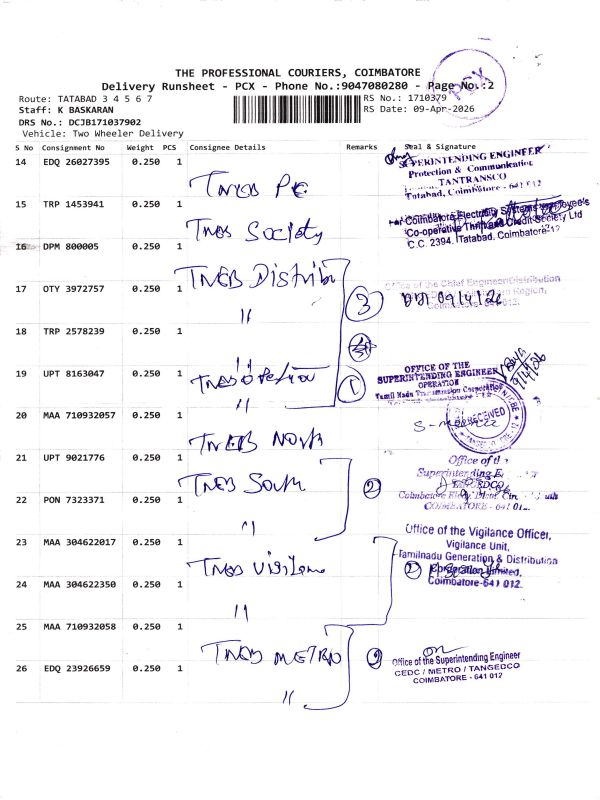 THE PROFESSIONAL COURIERS, COIMBATORE
Delivery Runsheet - PCX - Phone No.:9047080280 - Page No.:2
PCX
Route: TATABAD 3 4 5 6 7
RS No.: 1710379
Staff: K BASKARAN
RS Date: 09-Apr-2026
DRS No.: DCJB17103790​2
Vehicle: Two Wheeler Delivery
S No Consignment No Weight PCS Consignee Details Remarks Seal & Signature
14 EDQ 26027395 0.250 1 TNEB PC
SUPERINTENDING ENGINEER
Protection & Communication
TANTRANSCO
Tatabad, Coimbatore - 641 012
15 TRP 1453941 0.250 1 TNEB Society
Coimbatore Electricity Systems Employee's
Co-operative Thrift and Credit Society Ltd
C.C. 2394, Tatabad, Coimbatore-12
16 DPM 800005 0.250 1 TNEB Distribu
17 OTY 3972757 0.250 1 〃 3
Office of the Chief Engineer/Distribution
Region,
09/4/26
18 TRP 2578239 0.250 1 〃
19 UPT 8163047 0.250 1 TNEB Operation 1
OFFICE OF THE
SUPERINTENDING ENGINEER
OPERATION
Tamil Nadu Transmission Corporation
9/4/26
20 MAA 710932057 0.250 1 〃
TNEB North
RECEIVED
21 UPT 9021776 0.250 1 TNEB South 2
Office of the
Superintending E
22 PON 7323371 0.250 1 〃
COIMBATORE - 641 012
23 MAA 304622017 0.250 1 TNEB Vigilance 2
Office of the Vigilance Officer,
Vigilance Unit,
Tamilnadu Generation & Distribution
Corporation Limited,
Coimbatore-641 012
24 MAA 304622350 0.250 1 〃
25 MAA 710932058 0.250 1 TNEB METRO 2
26 EDQ 23926659 0.250 1 〃
Office of the Superintending Engineer
CEDC / METRO / TANGEDCO
COIMBATORE - 641 012